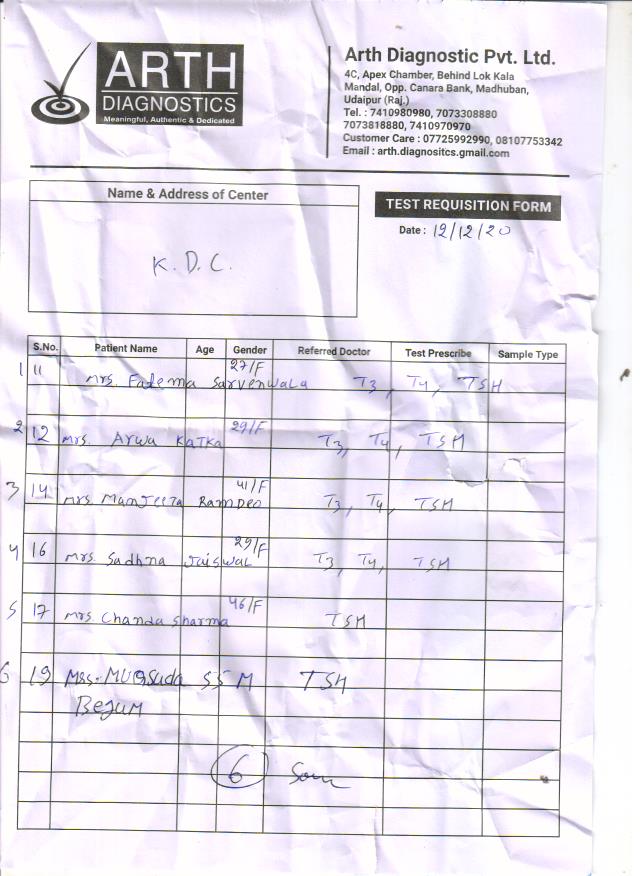 ARTH
DIAGNOSTICS
Meaningful, Authentic & Dedicated
Arth Diagnostic Pvt. Ltd.
4C, Apex Chamber, Behind Lok Kala
Mandal, Opp. Canara Bank, Madhuban,
Udaipur (Raj.)
Tel. : 7410980980, 7073308880
7073818880, 7410970970
Customer Care : 07725992990, 08107753342
Email : arth.diagnositcs.gmail.com
Name & Address of Center
K. D. C.
TEST REQUISITION FORM
Date : 12/12/20
S.No. Patient Name Age Gender Referred Doctor Test Prescribe Sample Type
1 11 Mrs. Fadema Sarvenwala 27/F T3, T4, TSH
2 12 Mrs. Arwa Katka 29/F T3, T4, TSH
3 14 Mrs. Manjeeta Ramdeo 41/F T3, T4, TSH
4 16 Mrs. Sadhna Jaiswal 29/F T3, T4, TSH
5 17 Mrs. Chanda Sharma 46/F TSH
6 19 Mrs. 55 M TSH
Begum
6